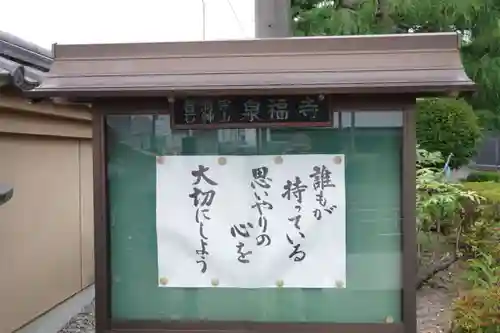 泉福寺
誰もが
持っている
思いやりの
心を
大切にしよう